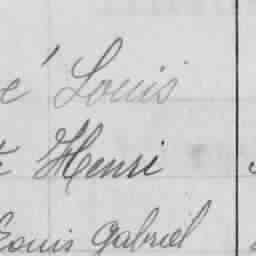 é Louis
Henri
Louis Gabriel